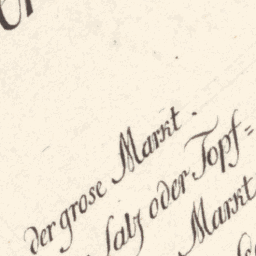 der grose Markt.
Salz oder Topf=
Markt